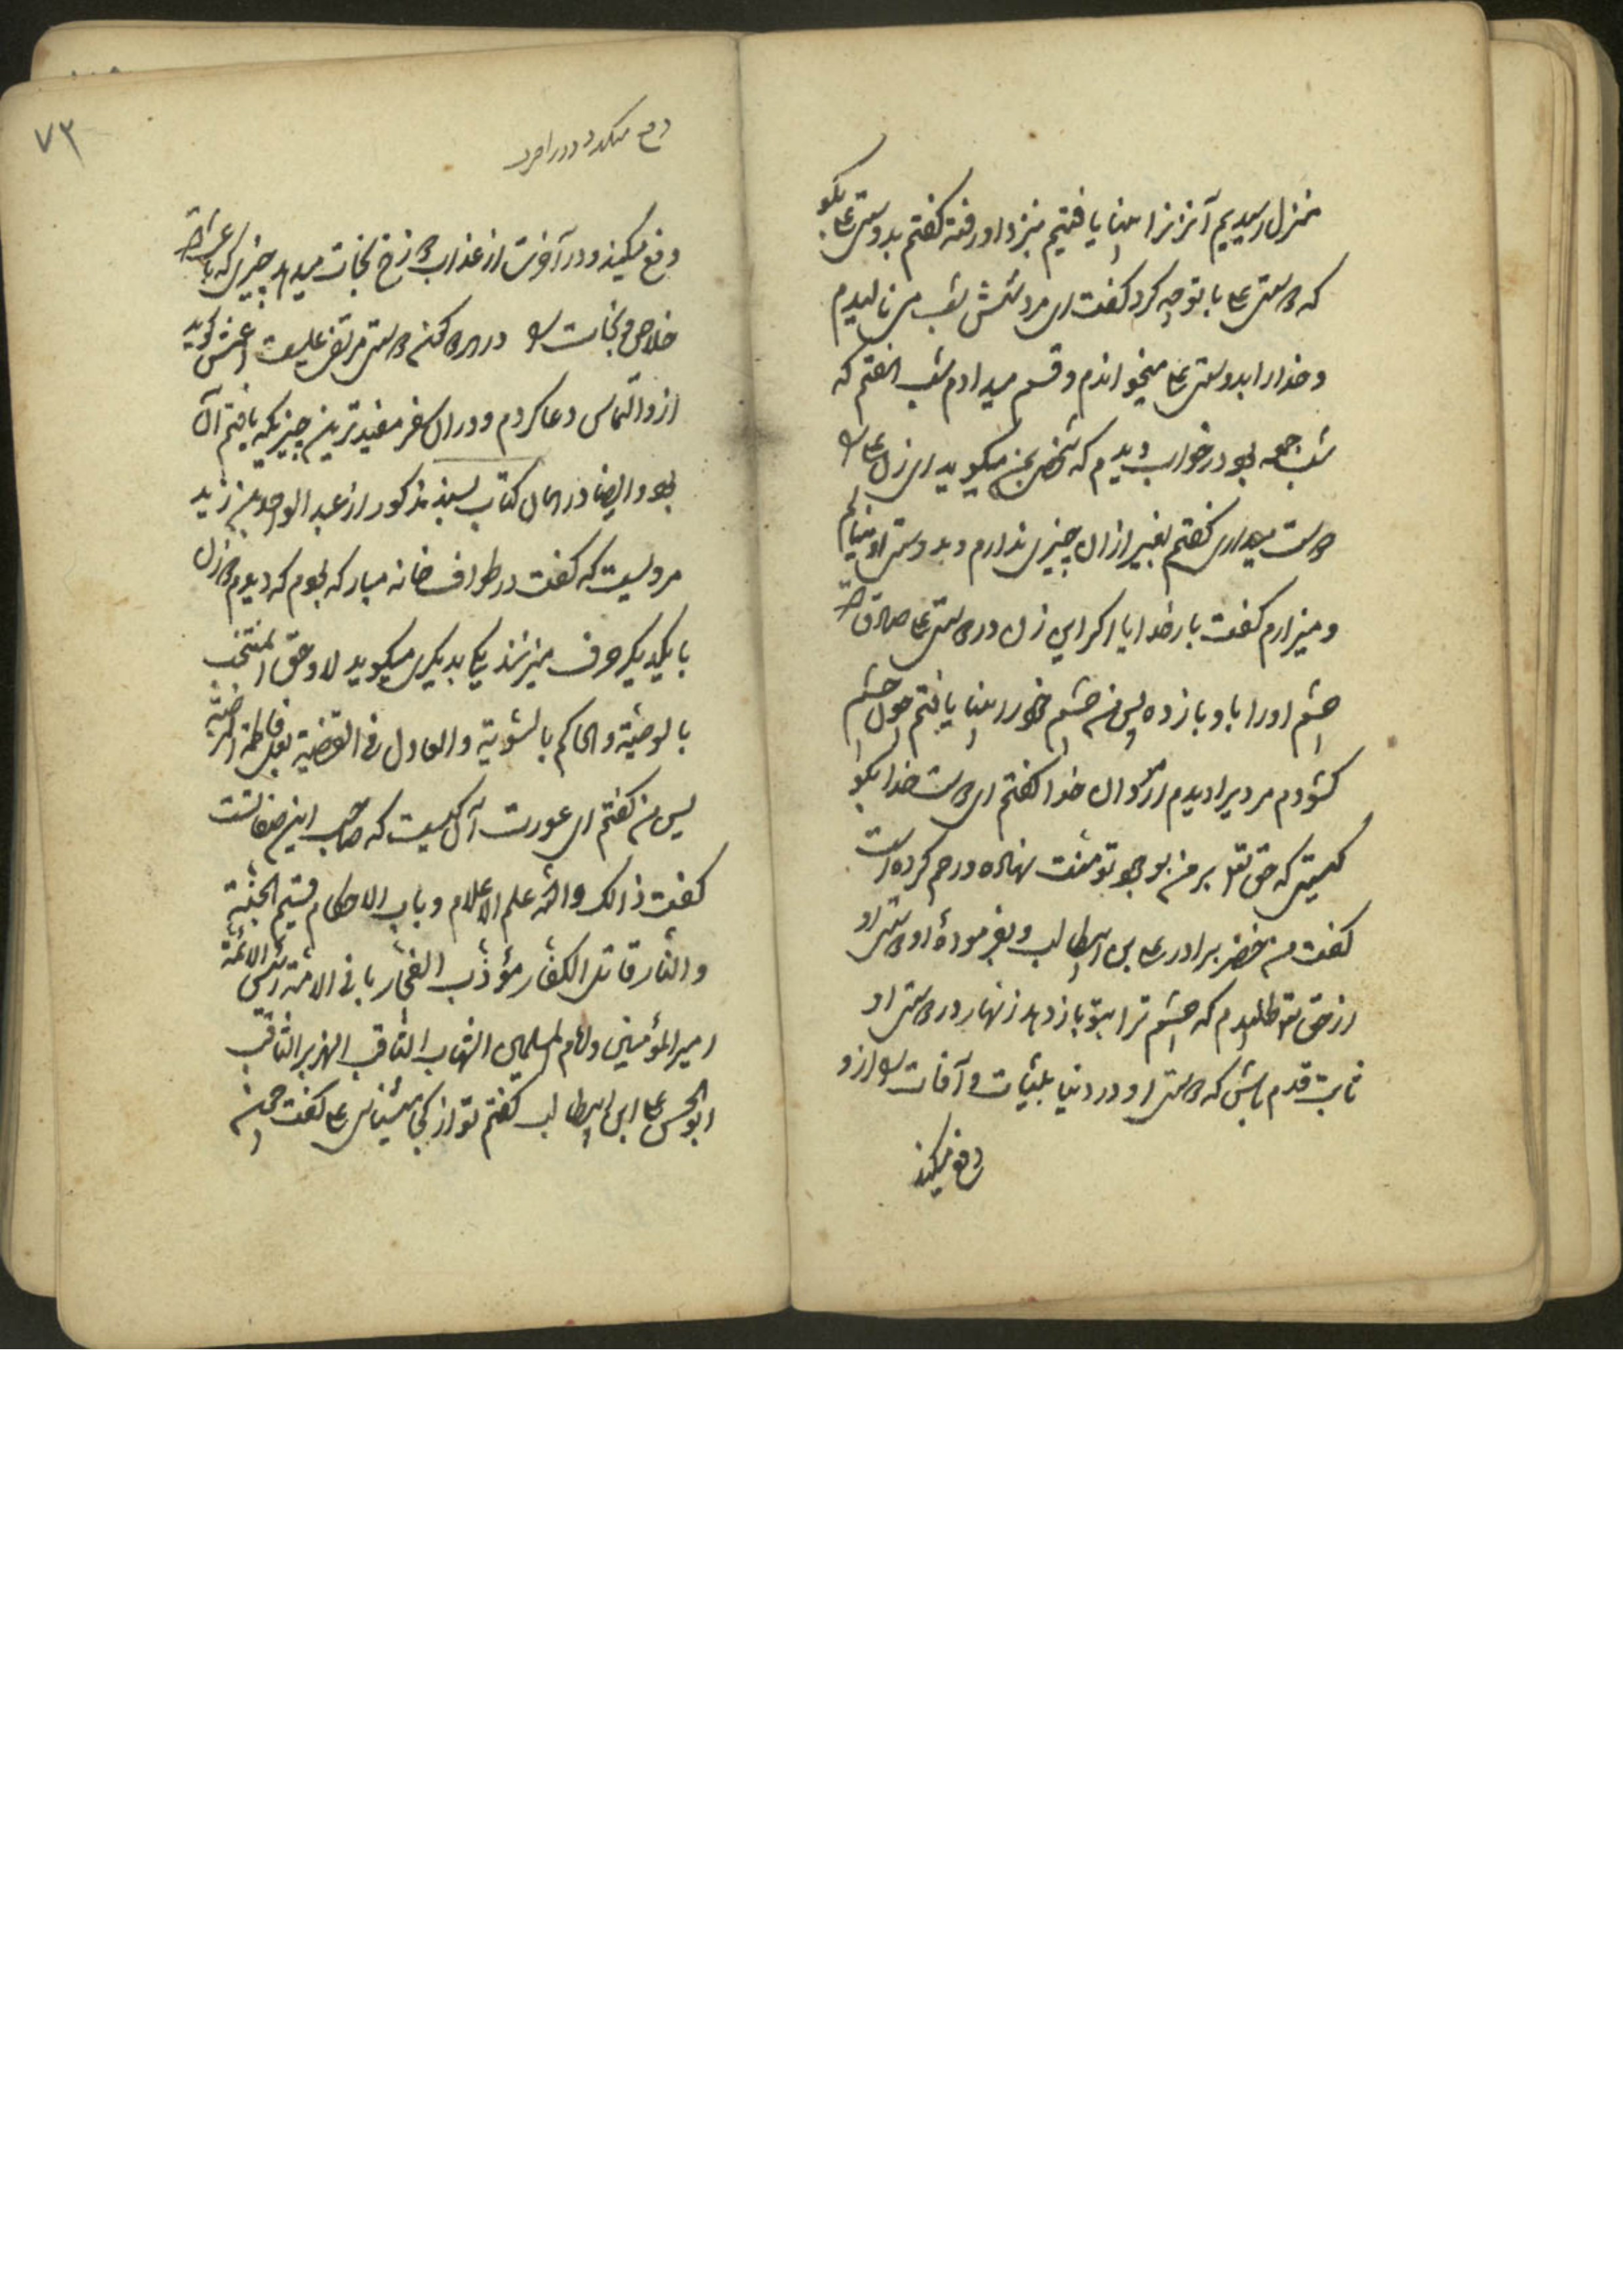 بمنزل رسیدیم آنزنرا بینا یافتیم بنزد او رفته گفتم بدوستی علی بگو
که دوستی علی با تو چه کرد گفت ای مرد شش شب می نالیدم
و خدا را بدوستی علی میخواندم و قسم میدادم شب هفتم که
شب جمعه بود در خواب دیدم که شخصی بمن میگوید ای زن علی را
دوست میداری گفتم بغیر از ان چیزی ندارم و بدوستی او
و میزارم گفت بار خدایا اگر این زن در دوستی علی صادق است
چشم او را باو باز ده پس من چشم خود را بینا یافتم چون چشم
گشودم مردیرا دیدم از مردان خدا گفتم ای دوست خدا بگو
کیستی که حق تعالی بر من بوجود تو منت نهاده و رحم کرده است
گفت من خضر برادر علی بن ابیطالب و بفرمودهٔ او دوستی او
از حق تعالی طلبیدم که چشم ترا بتو باز دهد زنهار در دوستی او
ثابت قدم باش که دوستی او در دنیا بلیّات و آفات را از تو
دفع میکند
۷۳
دفع میکند و در آخرت
دفع میکند و در آخرت از عذاب دوزخ نجات میدهد چیزی که باعث
خلاص و نجات بود در دو کون دوستی مرتضی علیست اعمش گوید
ازو التماس دعا کردم و در ان سفر مفیدترین چیزیکه یافتم آن
بود و ایضا در همان کتاب بسند مذکور از عبد الواحد بن زید
مرویست که گفت در طواف خانه مبارکه بودم که دیدم دو زن
با یکدیگر حرف میزنند یکی بدیگری میگوید لا و حق المنتجب
بالوصیّة و الحاکم بالسّویّة و العادل فی القضیّة بعل فاطمة المرضیّة
پس من گفتم ای عورت آن کیست که صاحب این صفاتست
گفت ذالک و الله علم الاعلام و باب الاحکام قسیم الجنّة
و النّار قاتل الکفّار مؤذّب الفجّار ربانی الامّة رئیس الائمّة
امیر المؤمنین و امام المسلمین الشهاب الثاقب الهزبر الثاقب
ابو الحسن علی ابن ابیطالب گفتم تو از کجا میشناسی علی را گفت چون